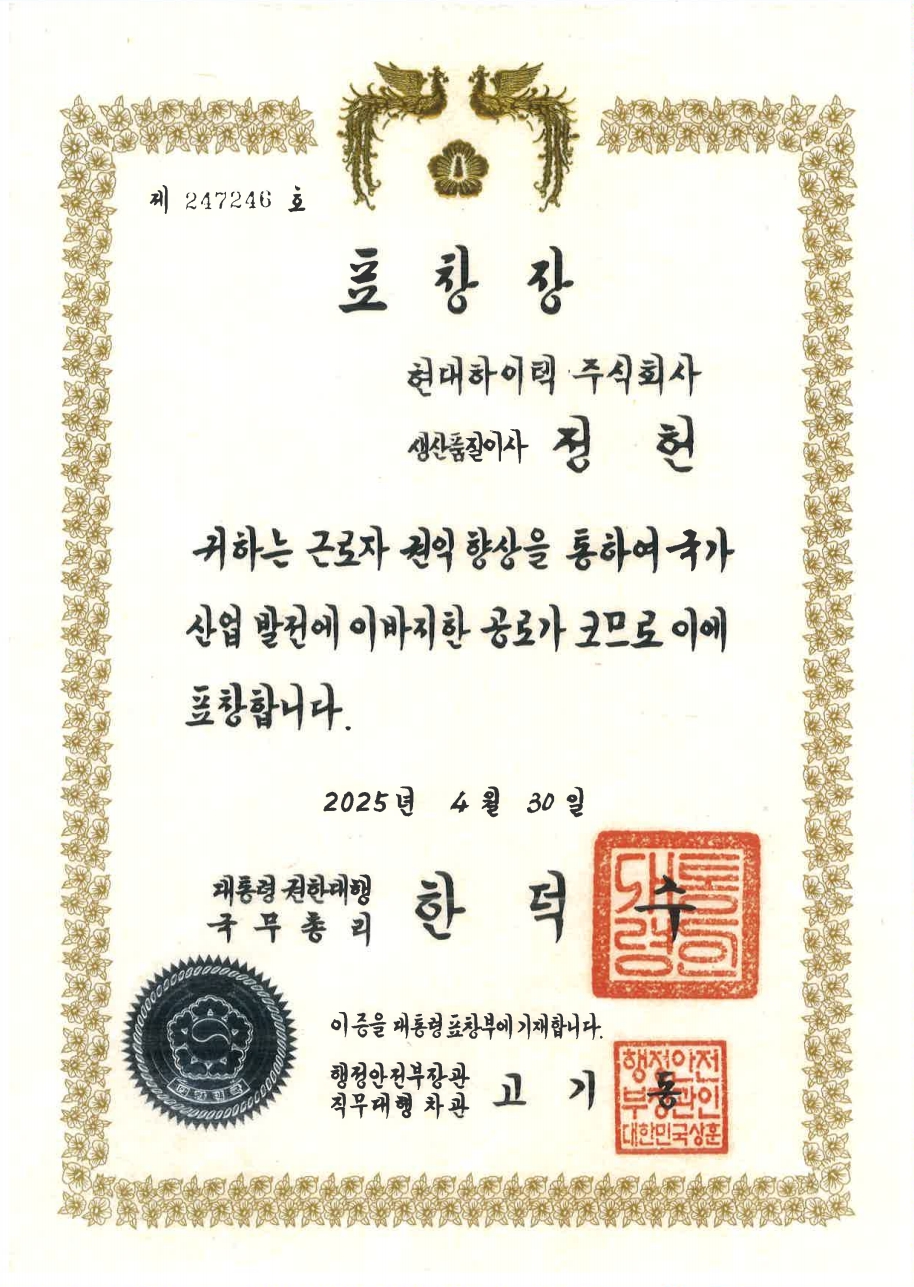 제 247246 호
표 창 장
현대하이텍 주식회사
생산품질이사 정 헌
귀하는 근로자 권익 향상을 통하여 국가
산업 발전에 이바지한 공로가 크므로 이에
표창합니다.
2025년 4월 30일
대통령 권한대행
국무총리 한 덕 수
대통령의인
이 증을 대통령표창부에 기재합니다.
행정안전부장관
직무대행 차관 고 기 동
행정안전
부장관인
대한민국상훈
대한민국